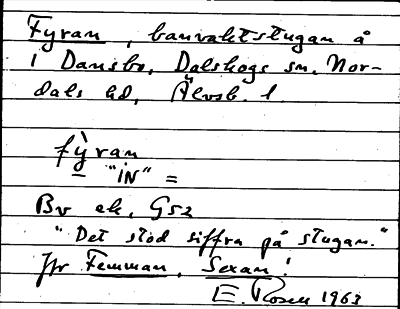 Fyran, banvaktstugan å
i Dansbo, Dalskogs sn, Nor-
dals hd, Älvsb. l.
fỳran
"IN" =
Bv ek, G52
"Det stod siffra på stugan."
Jfr Femman, Sexan!
E. Rosen 1963